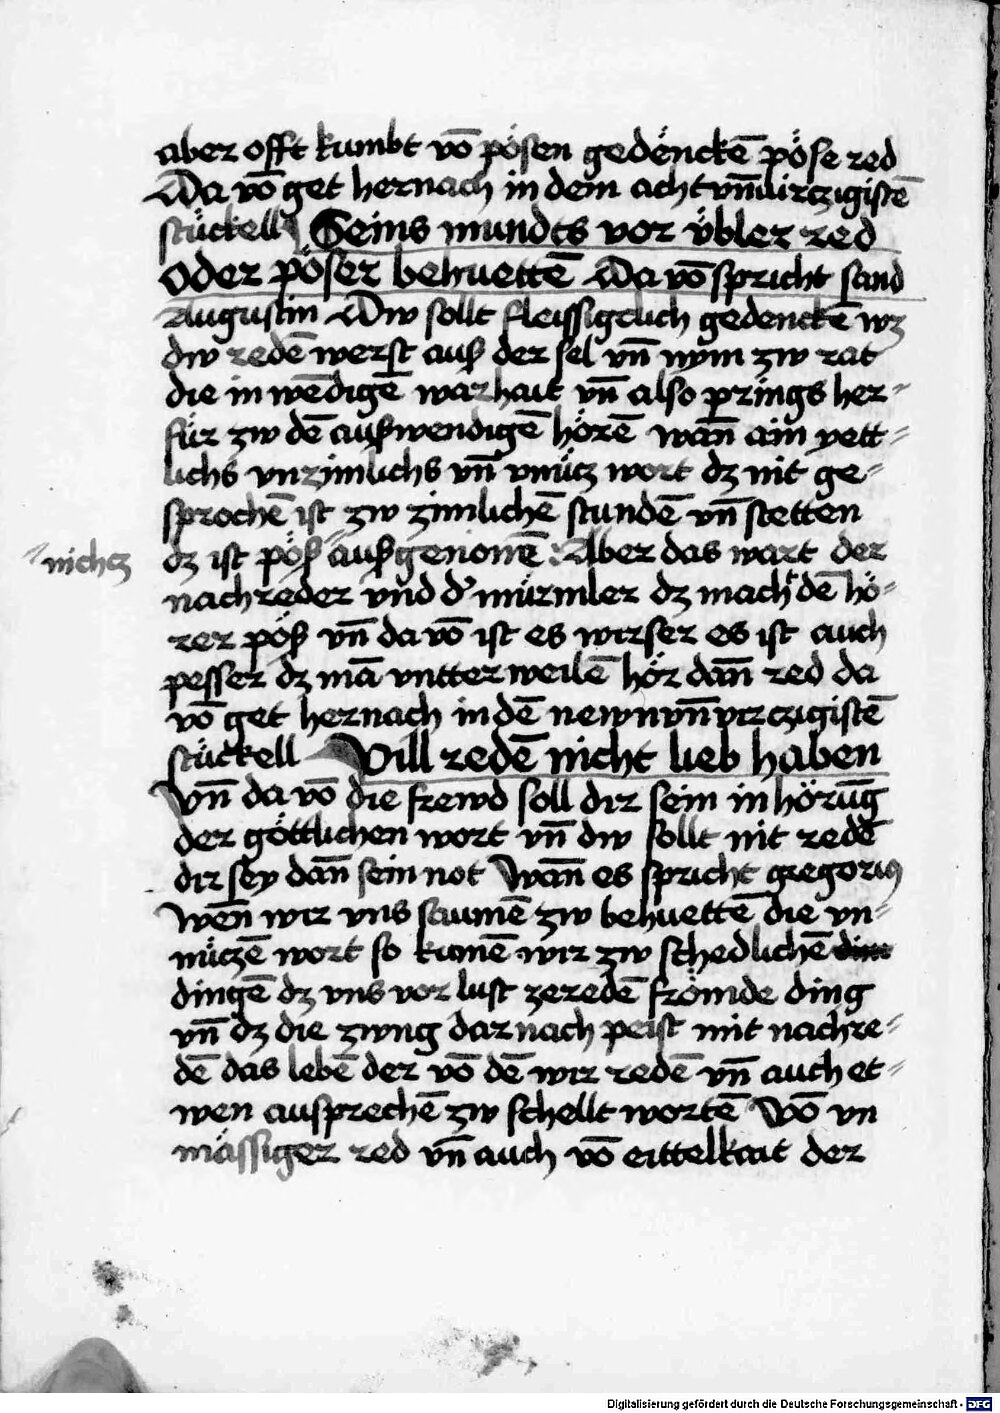 aber offt kumbt võ pösen gedenckẽ pöse red
Da võ get hernach in dem acht vñ virczigistẽ
stückell Seins mundts vor übler red
Oder pöser behuettẽ Da võ spricht sand
Augustin Dw sollt fleissigclich gedenckẽ wz
dw redẽ werst auß der sel vñ nym zw rat
die in wẽdigẽ warhait vñ also prings her-
für zw dẽ außwendigẽ hörẽ wañ ain yett-
lichs vnzimlichs vñ vnücz wort dz nit ge-
sprochẽ ist zw zimlichẽ stundẽ vñ stetten
nichcz
dz ist pöß außgenomẽ Aber das wart der
nachreder vnd d' mürmler dz macht dẽ hö-
rer pöß vñ da võ ist es wirser es ist auch
pesser dz mã vntterweilẽ hör dañ red da
võ get hernach in dẽ newn vñ virczigistẽ
stückell Vill redẽ nicht lieb haben
Vñ da võ die frewd soll dir sein in hörũg
der göttlichen wort vñ dw sollt nit redẽ
dir sey dañ sein not Wañ es spricht gregorius
Weñ wir vns saumẽ zw behuettẽ die vn-
nüczẽ wort so kumẽ wir zw schedlichẽ
dingẽ dz vns vor lust zeredẽ frömde ding
vñ dz die zwng darnach peist mit nachre-
dẽ das lebẽ der võ dẽ wir redẽ vñ auch et-
wen ausprechẽ zw schellt wortẽ Võ vn
mässiger red vñ auch võ eittelkait der
Digitalisierung gefördert durch die Deutsche Forschungsgemeinschaft - DFG